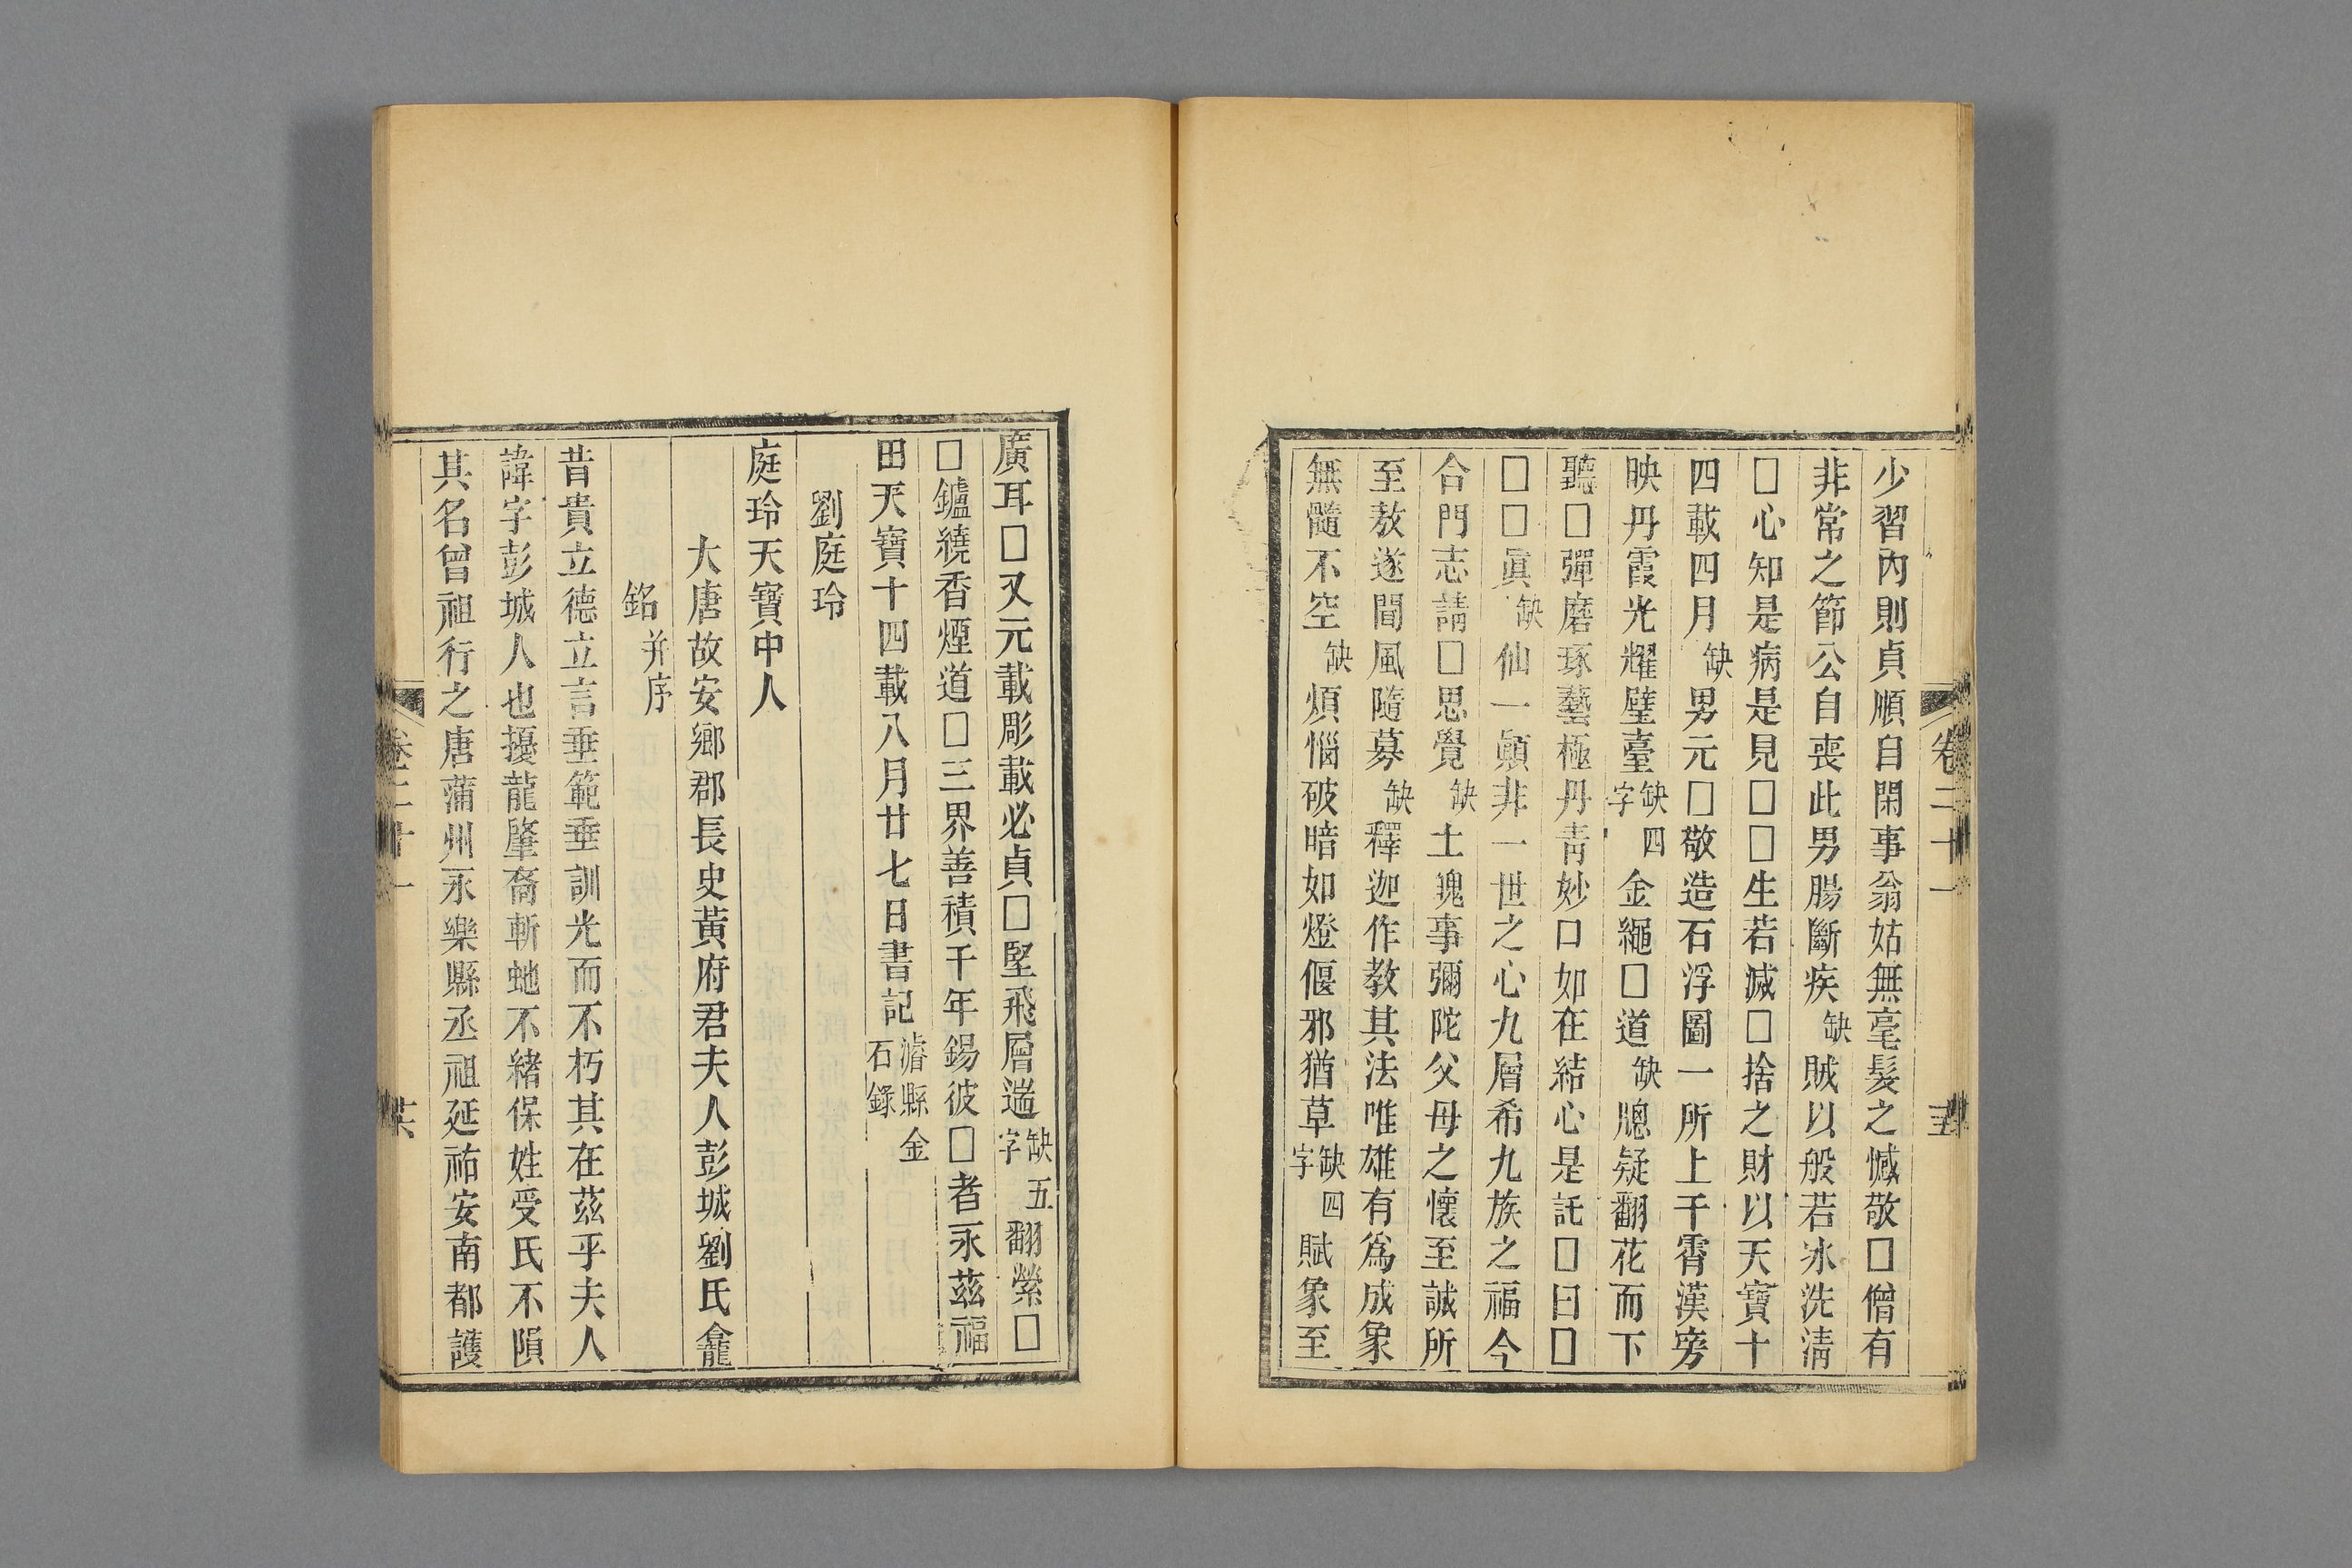 少習內則貞順自閑事翁姑無毫髮之憾敬□僧有
非常之節公自喪此男腸斷疾缺賊以般若氷洗清
□心知是病是見□□生若滅□捨之財以天寶十
四載四月缺男元□敬造石浮圖一所上干霄漢旁
映丹霞光耀璧臺缺四字金繩□道缺牕疑翻花而下
聽□彈磨琢藝極丹青妙口如在結心是託□曰□
□□眞缺仙一顚非一世之心九層希九族之福今
合門志請□思覺缺土瑰事彌陀父母之懷至誠所
至敖遂聞風隨募缺釋迦作教其法唯雄有爲成象
無髓不空缺煩惱破暗如燈偃邪猶草缺四字賦象至
卷二十一
廣耳□又元載彫載必貞□堅飛層遄缺五字翻縈□
□鑪繞香煙道□三界善積千年錫彼□者永茲福
田天寶十四載八月廿七日書記濬縣金石錄
劉庭玲
庭玲天寶中人
大唐故安鄉郡長史黃府君夫人彭城劉氏龕
銘并序
昔貴立德立言垂範垂訓光而不朽其在茲乎夫人
諱字彭城人也擾龍肇裔斬虵不緒保姓受氏不隕
其名曾祖行之唐蒲州永樂縣丞祖延祐安南都護
卷二十一